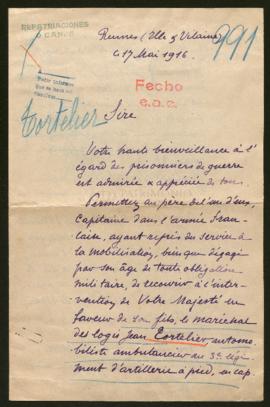 REPATRIACIONES
O CANJE
991
Rennes (Ille & Vilaine)
le 17 Mai 1916
Pedir informes
Fecho
e.a.c.
Cortelier
Sire
Votre haute bienveillance à l'
égard des prisonniers de guerre
est admirée & appréciée de tous.
Permettez au père de l'un d'eux,
Capitaine dans l'armée fran-
çaise, ayant repris du service à
la mobilisation, bien que dégagé
par son âge de toute obligation
militaire, de recourir à l'inter-
vention de Votre Majesté en
faveur de son fils, le maréchal
des logis Jean Cortelier, automo
biliste ambulancier au 3e régi-
ment d'artillerie à pied, en cap-